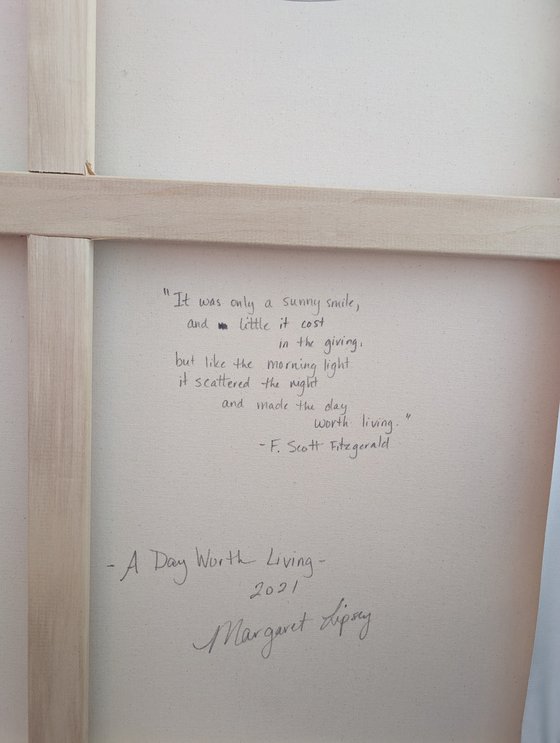 "It was only a sunny smile,
and little it cost
in the giving,
but like the morning light
it scattered the night
and made the day
worth living."
- F. Scott Fitzgerald
- A Day Worth Living -
2021
Margaret Lipsey